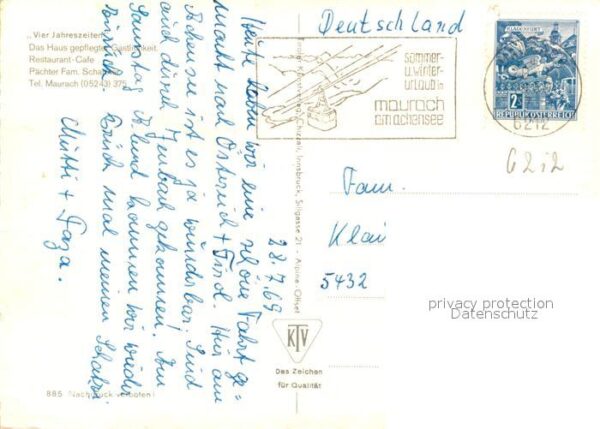 „Vier Jahreszeiten"
Das Haus gepflegter Gastlichkeit
Restaurant-Cafe
Pächter Fam.
Tel. Maurach (05243) 375
Deutschland
sommer-
u. winter-
urlaub in
maurach
am achensee
KLAGENFURT
2 S
REPUBLIK ÖSTERREICH
6212
6212
28.7.69
Heute haben wir eine schöne Fahrt ge=
macht nach Österreich + Tirol. Hier am
Achensee ist es ja wunderbar. Sind
auch durch Jenbach gekommen. Am
Samstag Abend kommen wir wieder
zurück. Drück mal meinen Schatzi
Mutti +
Chizzali, Innsbruck, Sillgasse 21 - Alpine-Offset
Fam.
Klai
5432
privacy protection
Datenschutz
KTV
Das Zeichen
für Qualität
885 Nachdruck verboten!